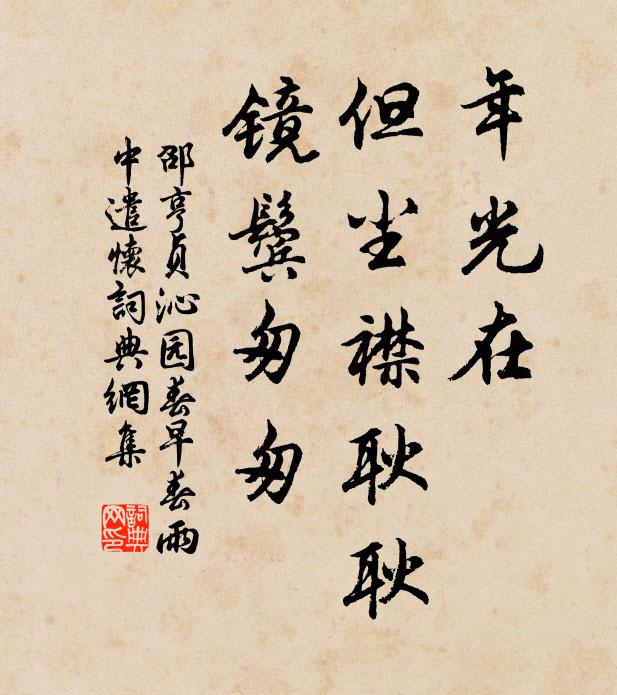 年光在
但尘襟耿耿
镜鬓匆匆
邵亨贞沁园春早春雨
中遣懷詞典網集
詞典
网印